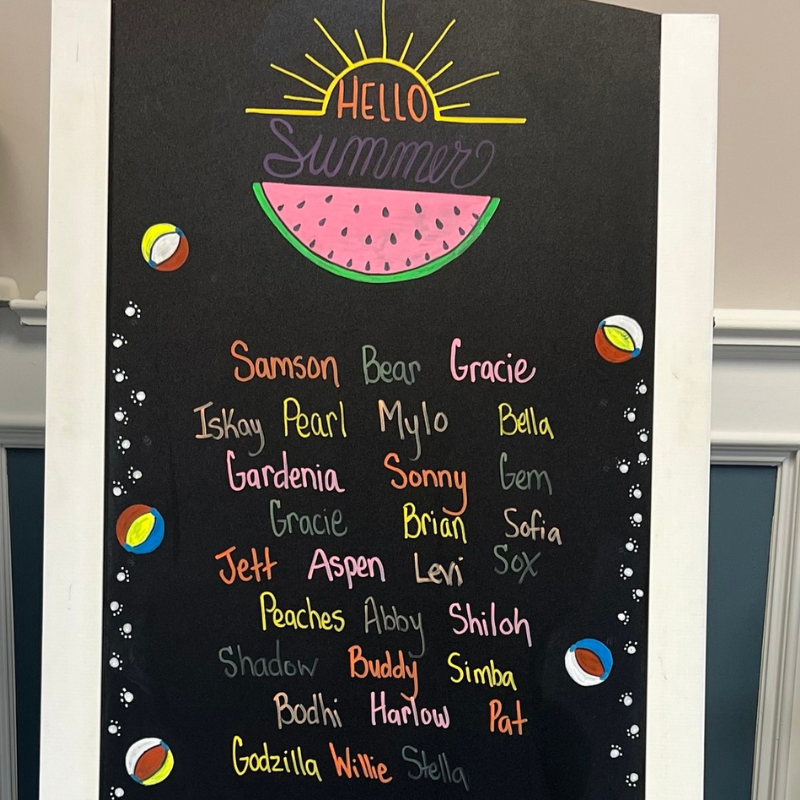 HELLO
Summer
Samson Bear Gracie
Iskay Pearl Mylo Bella
Gardenia Sonny Gem
Gracie Brian Sofia
Jett Aspen Levi Sox
Peaches Abby Shiloh
Shadow Buddy Simba
Bodhi Harlow Pat
Godzilla Willie Stella